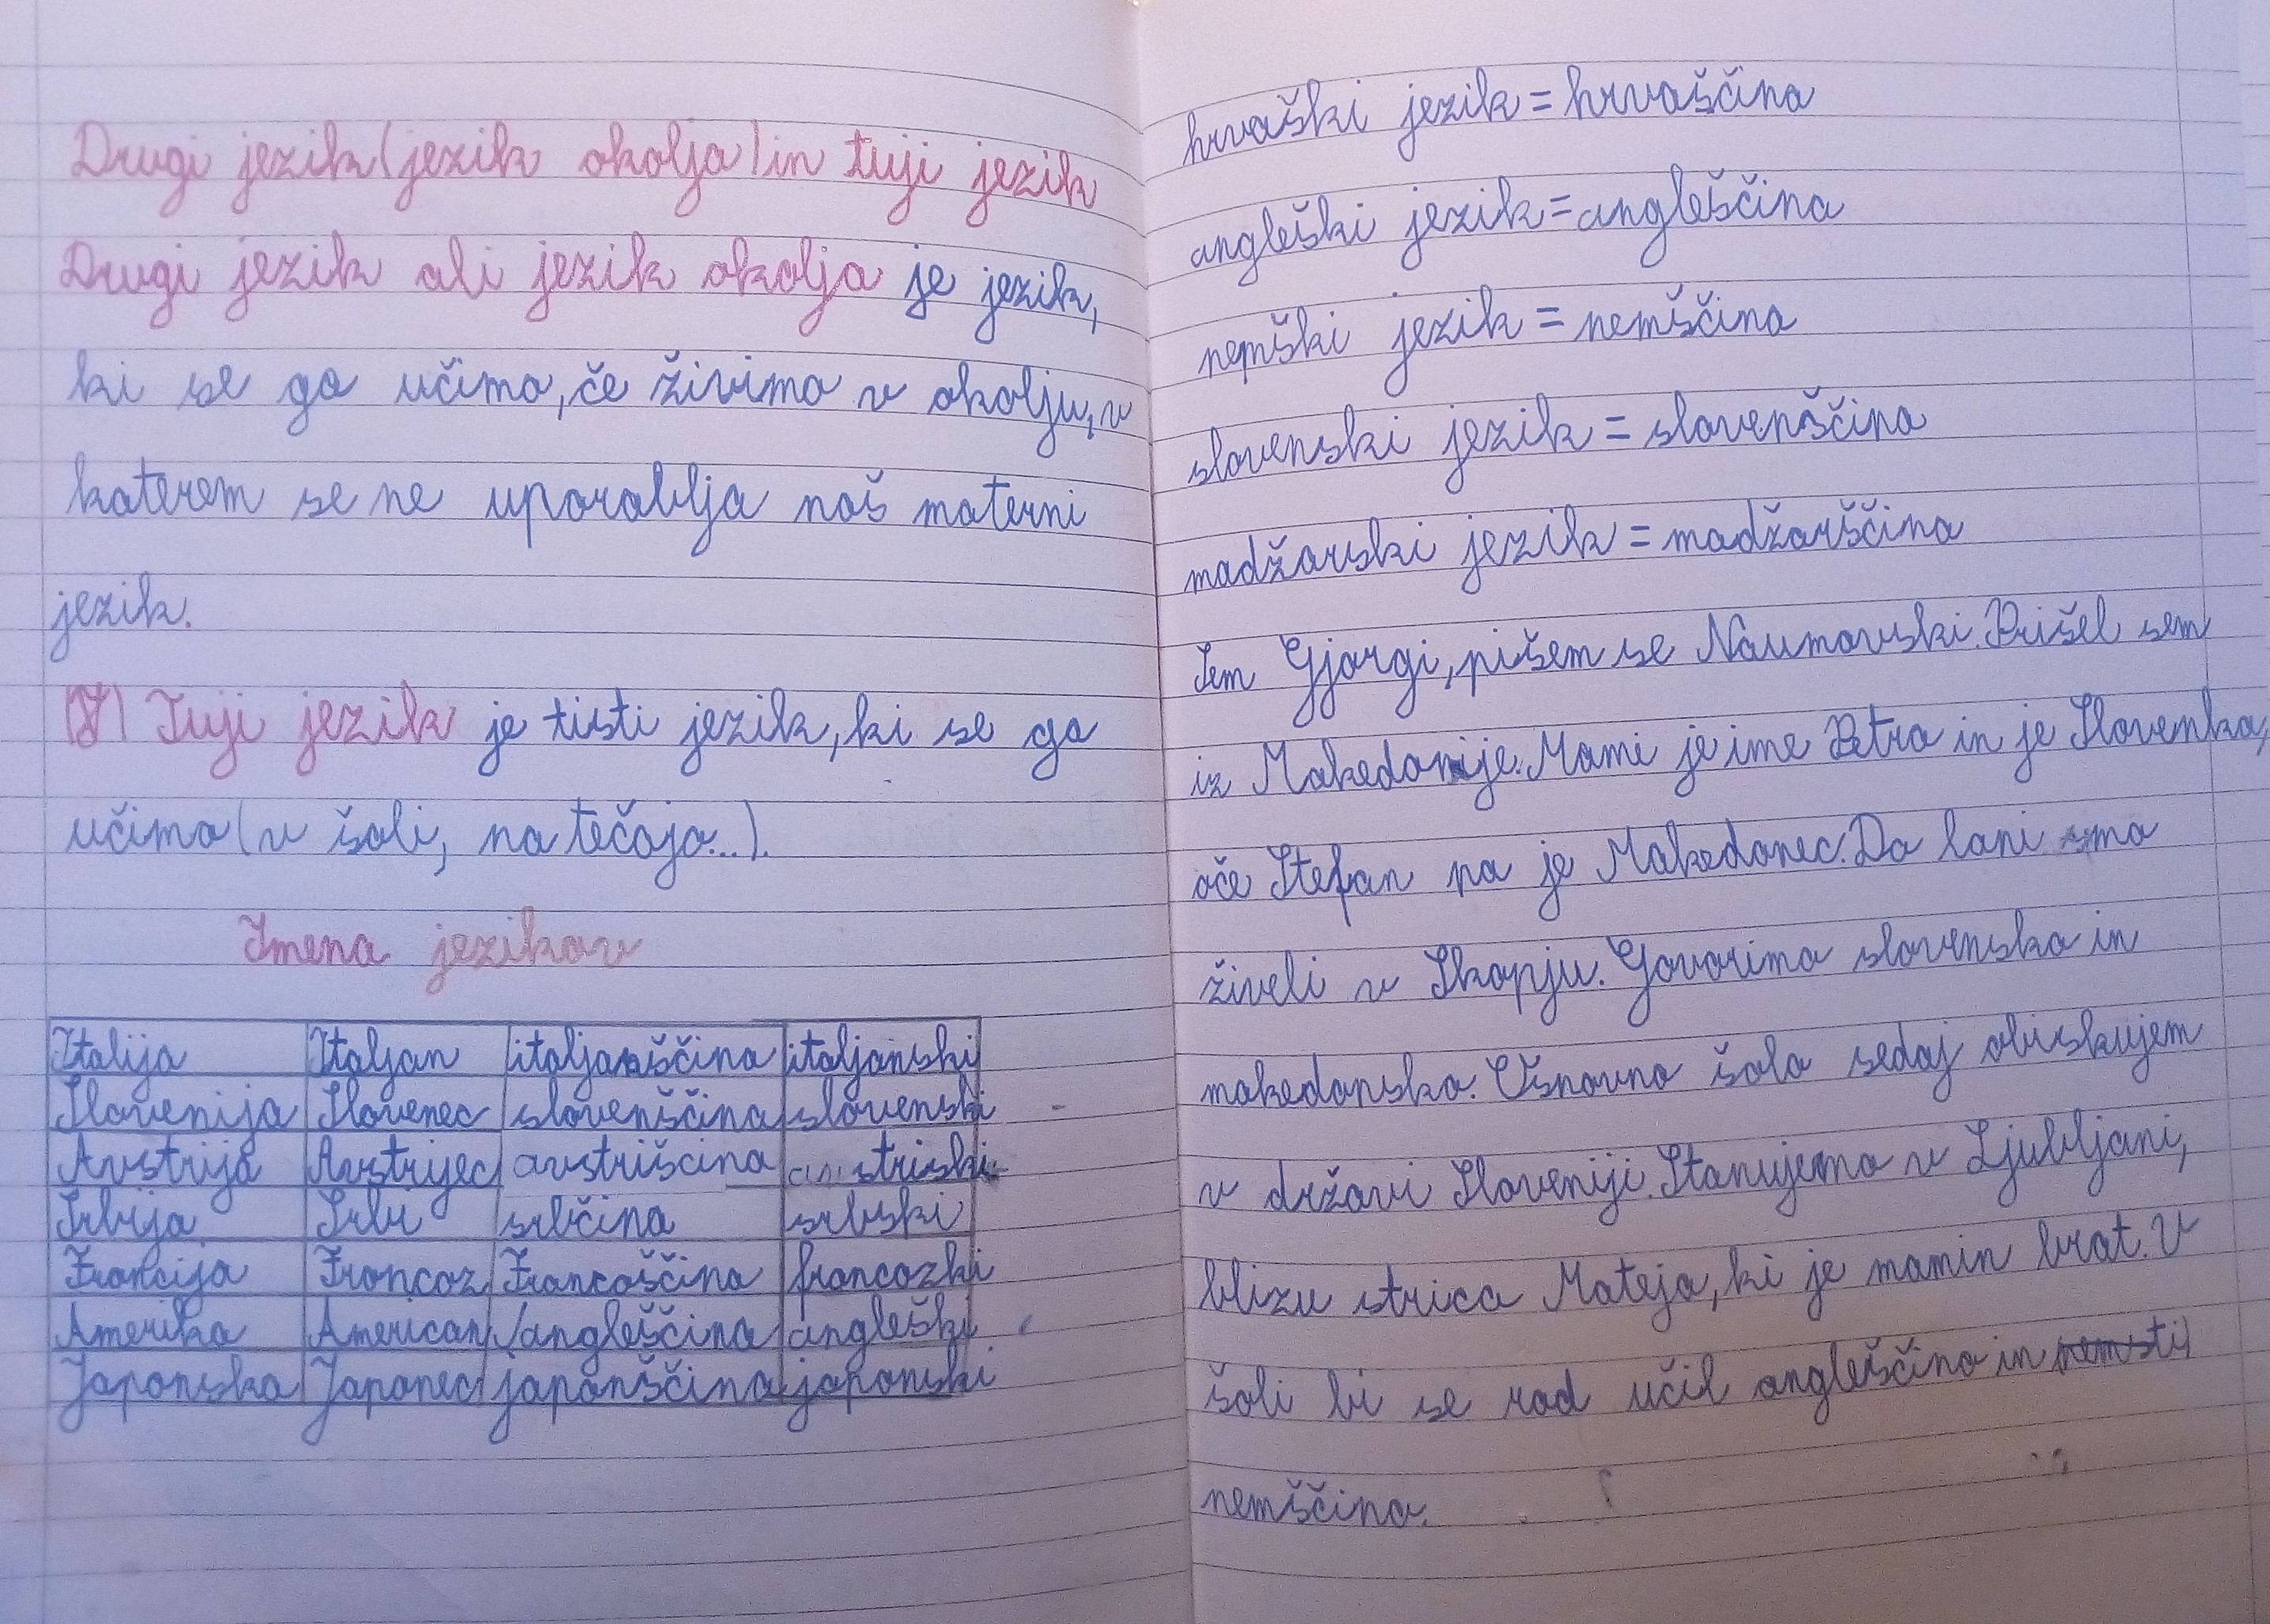 Drugi jezik (jezik okolja) in tuji jezik
Drugi jezik ali jezik okolja je jezik,
ki se ga učimo, če živimo v okolju, v
katerem se ne uporablja naš materni
jezik.
(J) Tuji jezik je tisti jezik, ki se ga
učimo (v šoli, na tečaja...).
Imena jezikov
Italija Italjan italjanščina italjanski
Slovenija Slovenec slovenščina slovenski
Avstrija Avstrijec avstriščina avstriski
Srbija Srb srbčina srbski
Francija Francoz Francoščina francozki
Amerika American angleščina angleški
Japonska Japonec japonščina japonski
hrvaški jezik = hrvaščina
angleški jezik = angleščina
nemški jezik = nemščina
slovenski jezik = slovenščina
madžarski jezik = madžarščina
Sem Gjorgi, pišem se Naumovski. Prišel sem
iz Makedonije. Mami je ime Petra in je Slovenka,
oče Stefan pa je Makedonec. Do lani smo
živeli v Skopju. Govorimo slovensko in
makedonsko. Osnovno šolo sedaj obiskujem
v državi Sloveniji. Stanujemo v Ljubljani,
blizu strica Mateja, ki je mamin brat. V
šoli bi se rad učil angleščino in
nemščino.